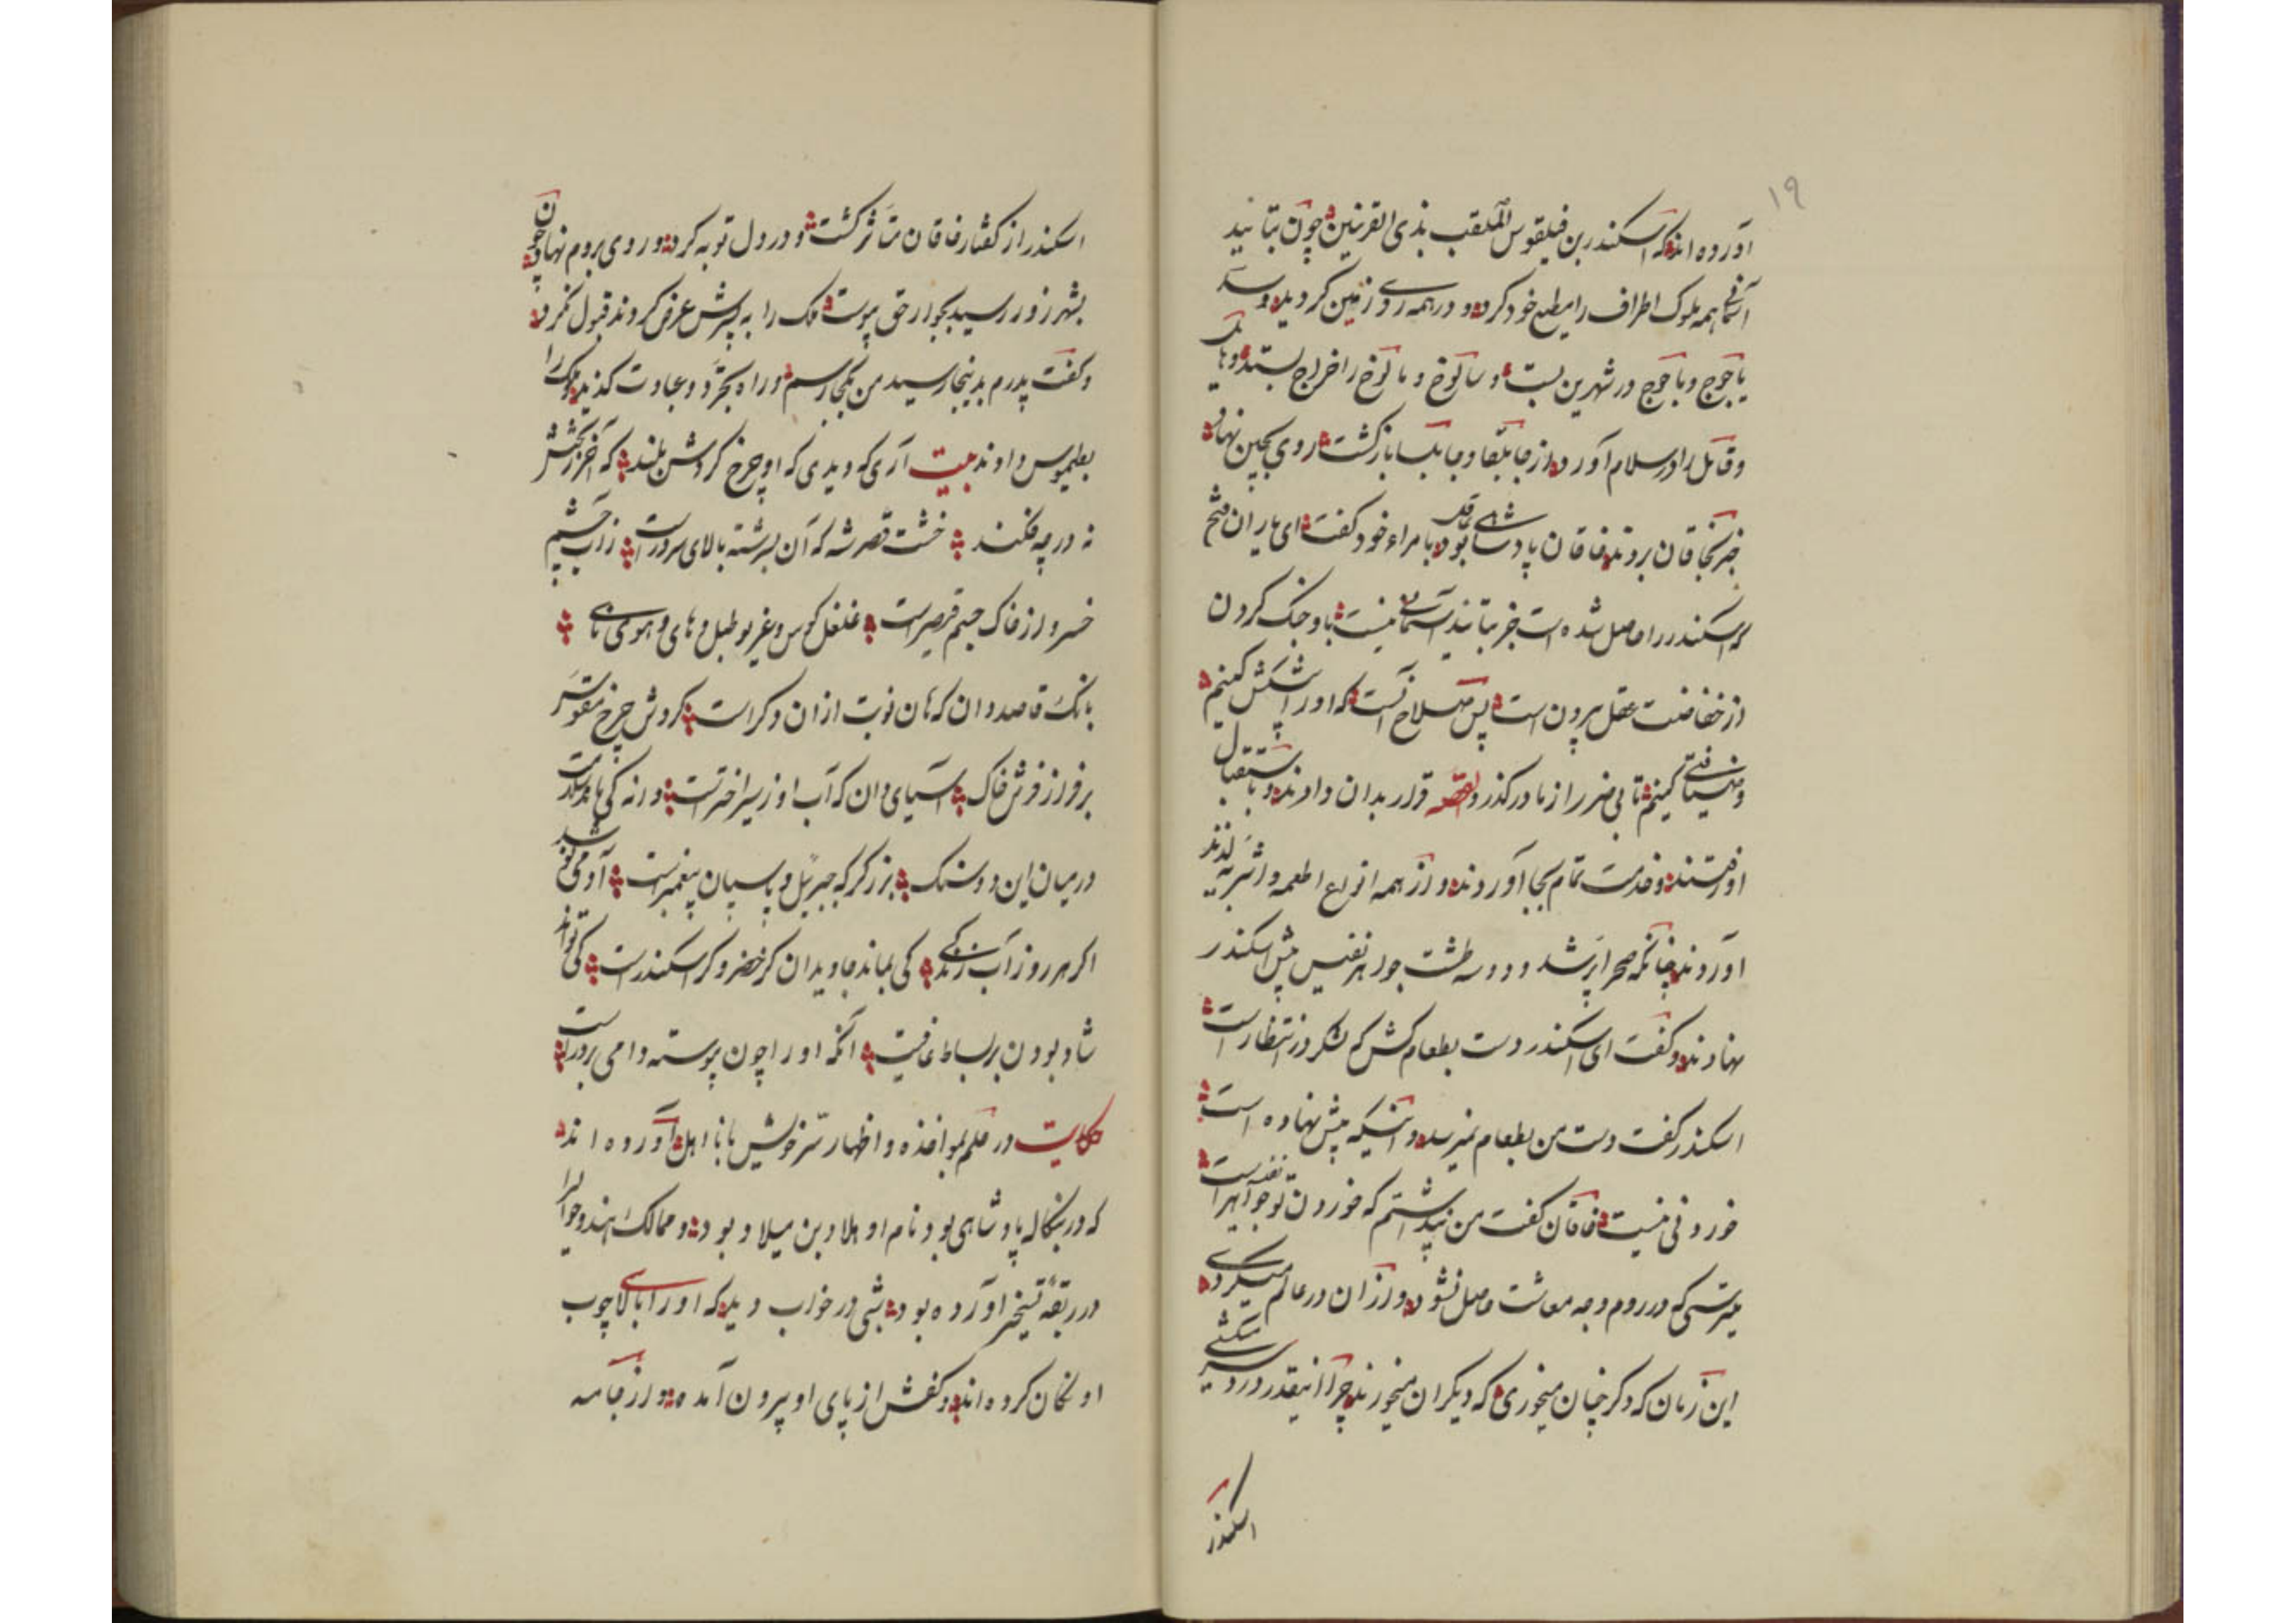 ۱۹
آورده اند که اسکندر بن فیلقوس الملقب بذی القرنین چون بتائید
آسمانی همه ملوک اطراف را مطیع خود کرد و در همه روی زمین گردید و سد
یاجوج و ماجوج در شهر بن بست و را اخراج بستد و
و قابل را در اسلام آورد از جابلقا و جابلسا بازگشت روی بچین نهاد
خبر بخاقان بردند خاقان پادشاهی عاقل بود بامراء خود گفت ای یاران فتح
که اسکندر را حاصل شده است جز بتائید آسمانی نیست با او جنک کردن
از عقل بیرون است پس صلاح آنست که او را پیشکش کنیم
و ضیافتی کنیم تا بی ضرر از ما درگذرد القصه قرار بدان دادند و باستقبال
او رفتند و خدمت تمام بجا آوردند و از همه انواع اطعمه و اشربه لذیذ
آوردند چنانکه صحرا پر شد و دو سه طشت جواهر نفیس پیش اسکندر
نهادند و گفت ای اسکندر دست بطعام کش که لشکر در انتظار است
اسکندر گفت دست من بطعام نمیرسد و آنیکه پیش نهاده است
خوردنی نیست خاقان گفت من پنداشتم که خوردن تو جواهر نفیس است
میترسی که در روم وجه معاشت حاصل نشود و از آن در عالم میگردی
این زمان که دگر چنان میخوری که دیگران میخورند چرا اینقدر دردسر میکشی
اسکندر
اسکندر از گفتار خاقان متأثر گشت و در دل توبه کرد و روی بروم نهاد چون
بشهر زور رسید بجوار حق پیوست ملک را به پسرش عرض کردند قبول نکرد
و گفت پدرم بدینجا رسید من بکجا رسم و راه تجرد و عبادت گزید ملک را
بطلمیوس دادند بیت آری که دیدی که او چرخ گردنش بلند که آخر
نه در چه فکند خشت قصر شه که آن بسرشته بالای سرور است ز آب چشم
خسرو از خاک جسم قیصر است غلغل کوس و غریو طبل و های و هوی نای
بانک قاصد دان که هان نوبت از آن دگر است گردش چرخ مقوس
بر فراز فرش خاک آسیای دان که آب او ز سیر اختر است دانه کی ماند درست
در میان این دو سنک بزرگر که جبرئیل و پاسبان پیغمبر است آدمی
اگر هر روز آب زندگی کی بماند جاویدان گر خضر و گر اسکندر است کی تواند
شاد بودن بر بساط عافیت آنکه او را چون پیوسته دامی بر در است
حکایت در مواخذه و اظهار سر خویش با نا اهل آورده اند
که در بنگاله پادشاهی بود نام او هلاد بن میلاد بود و ممالک هند و حوالی را
در ربقه تسخیر آورده بود شبی در خواب دید که او را بالا چوب
اونکان کرده اند و کفش از پای او بیرون آمده و از جامه